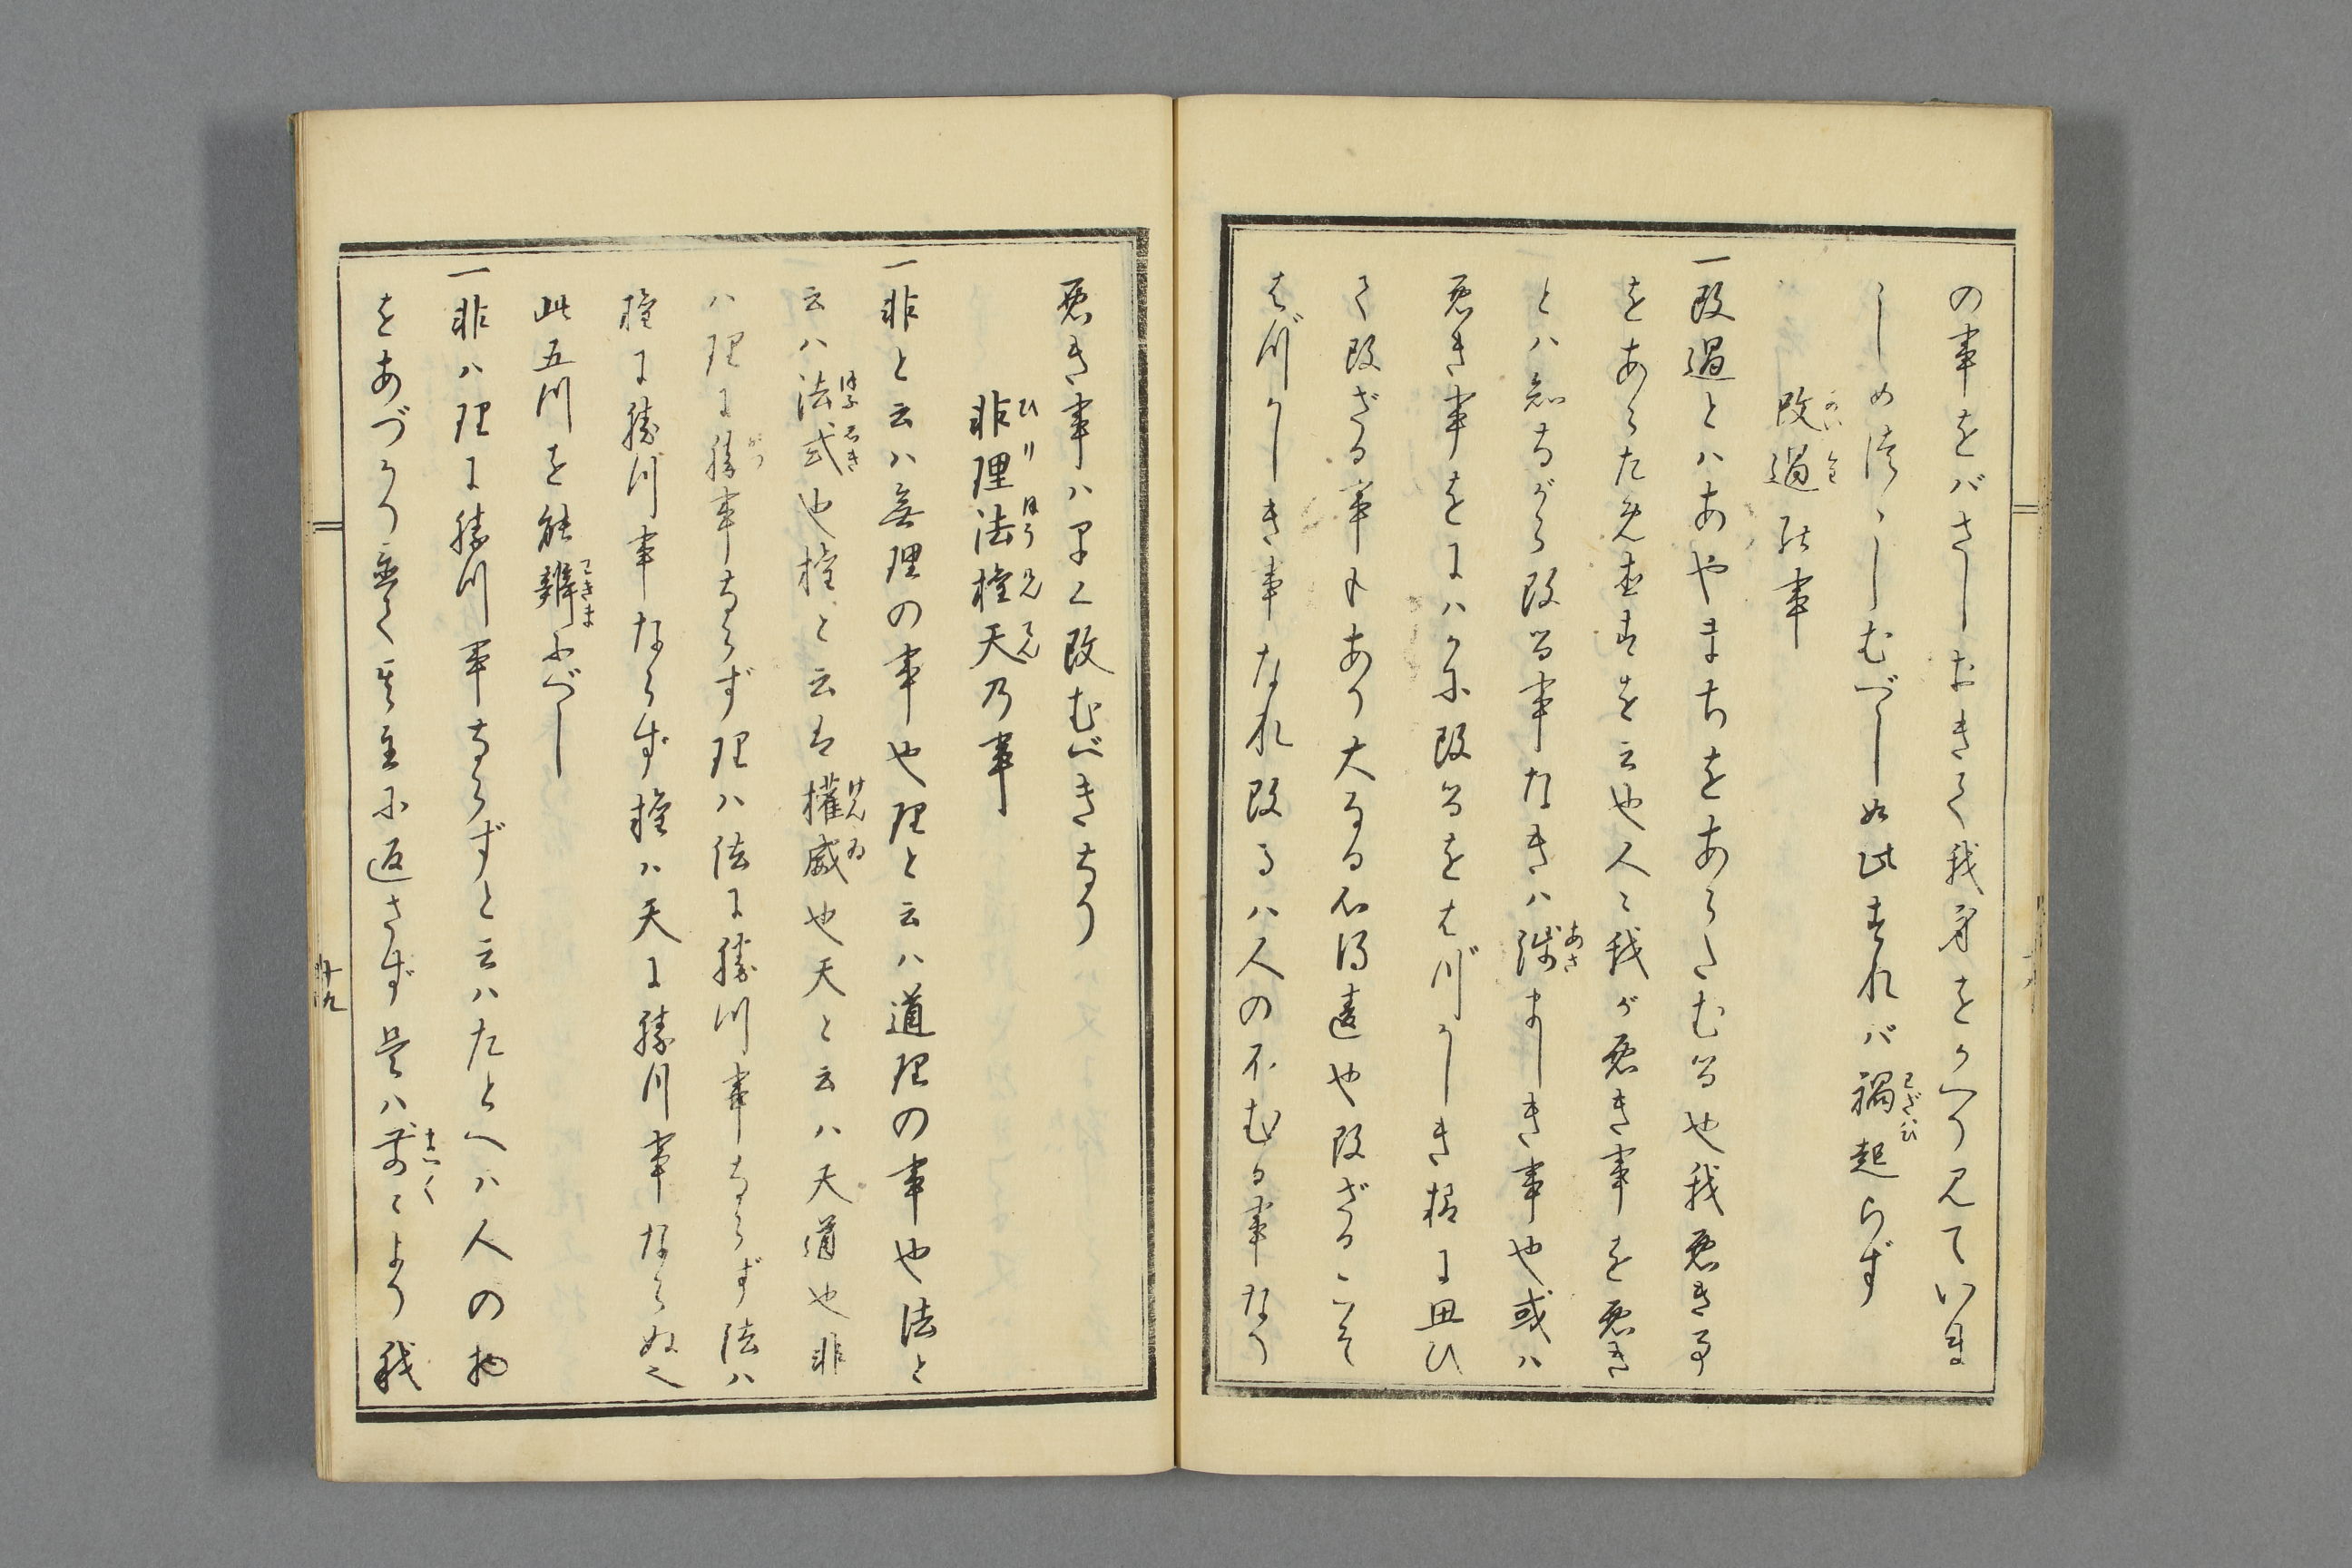 の事をバさしおきて我身をかへり見ていま
しめつゝしむべし如此すれバ禍起らず
わざハひ
改過の事
一改過とハあやまちをあらたむる也我悪き事
をあらため直すを云也人々我が悪き事を悪き
とハ知ながら改る事なきハ浅ましき事也或ハ
あさ
悪き事をにハかに改るをはづかしき様に思ひ
て改ざる事もあり大なる心得違也改ざるこそ
はづかしき事なれ改るハ人の不む る事なり
悪き事ハ早く改むべきなり
非理法権天乃事
ひりほうけんてん
一非と云ハ無理の事也理と云ハ道理の事也法と
云ハ法式也権と云は權威也天と云ハ天道也非
はふしき
けんゐ
ハ理に勝事ならず理ハ法に勝川事ならず法ハ
かつ
権に勝川事ならず権ハ天に勝川事ならぬ也
此五川を能辨ふべし
わきま
一非ハ理に勝川事ならずと云ハたとへハ人の物
をあづかり置て其主に返さず是ハ前々より我
十九